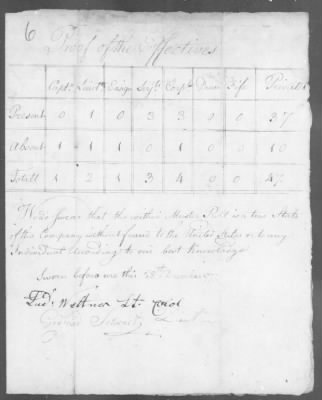 6
Proof of the Effectives
Capt. Lieut. Ensign Serjt. Corpl. Drum Fife Privates
Present 0 1 0 3 3 0 0 37
Absent 1 1 1 0 1 0 0 10
Totall 1 2 1 3 4 0 0 47
We do swear that the within Muster Roll is a true State
of this Company without fraud to the United States or to any
Individual According to our best Knowledge
Sworn before me this
Lt. Col